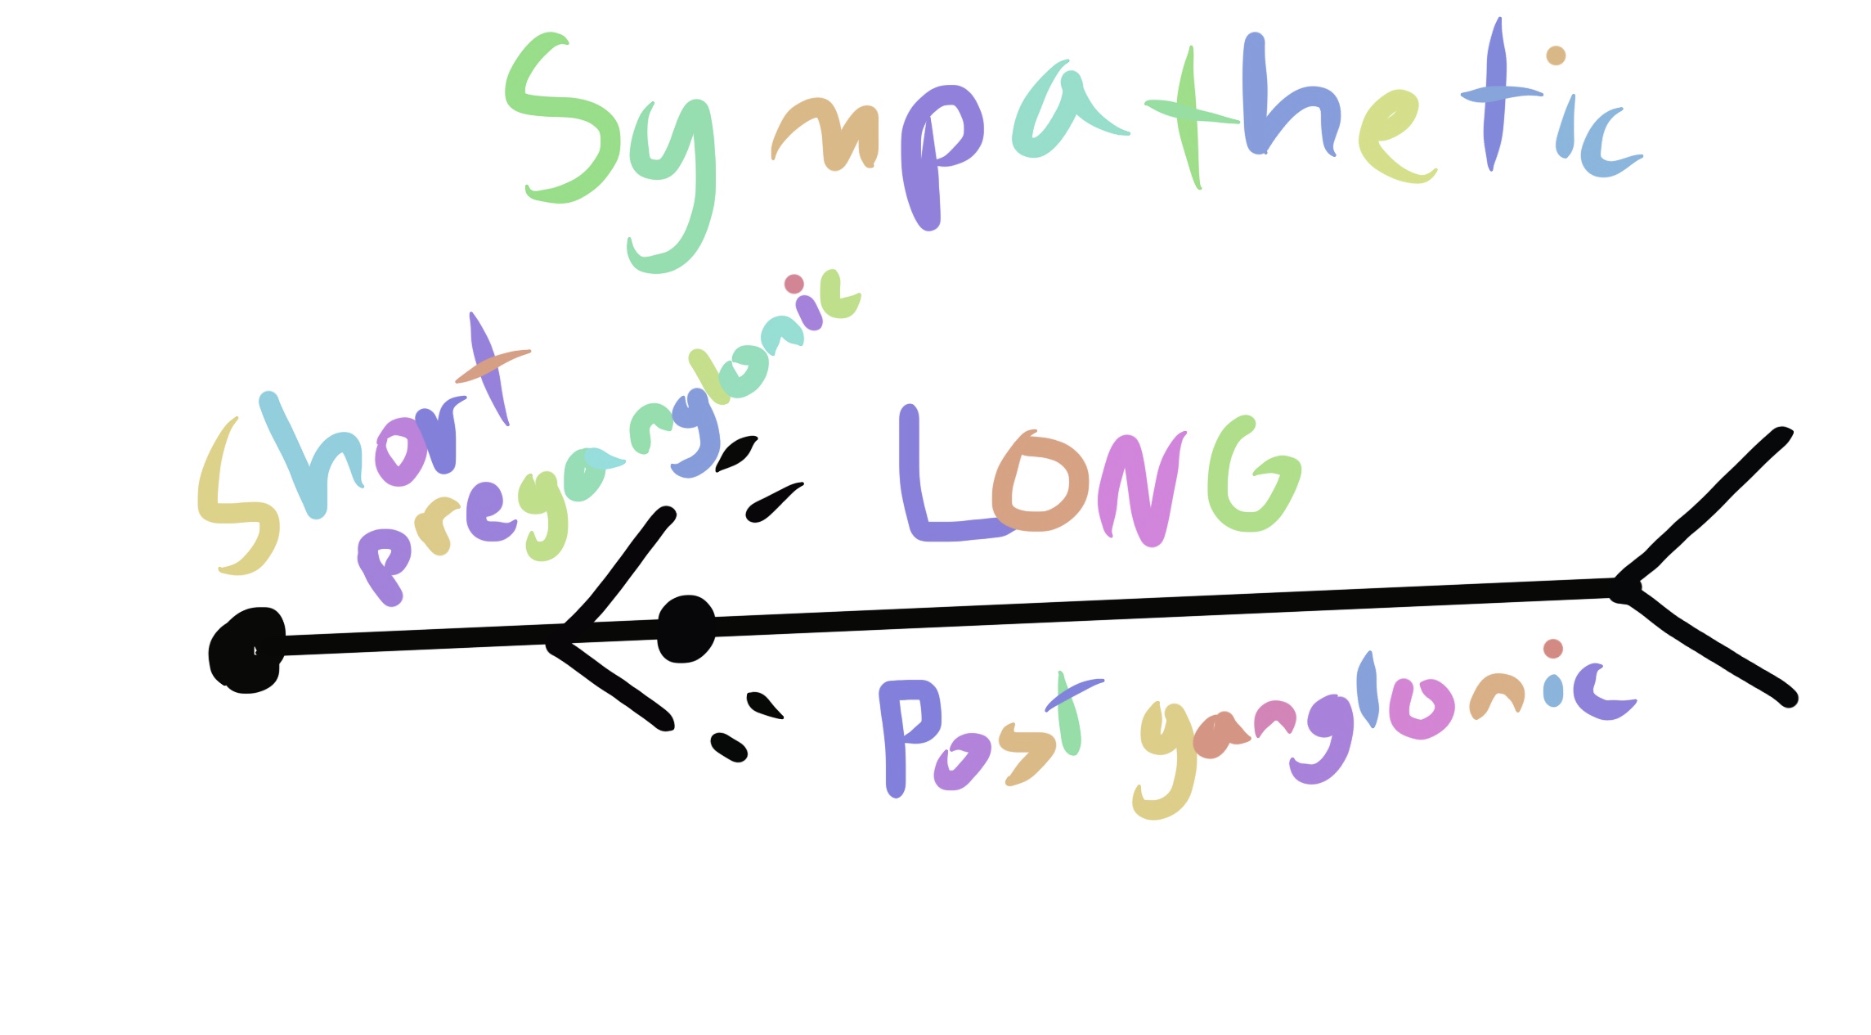 Sympathetic
Short
preganglonic
LONG
Post ganglonic